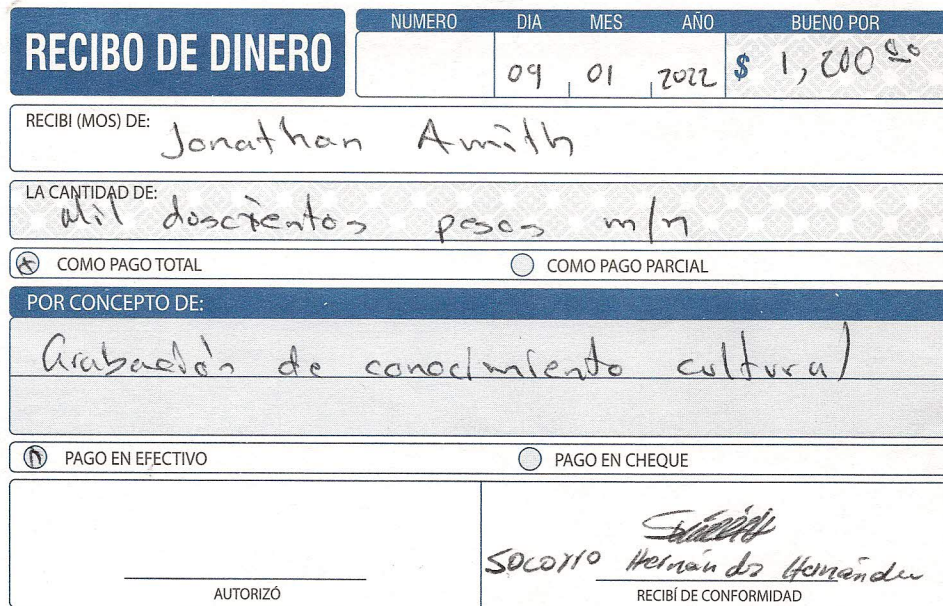 RECIBO DE DINERO
NUMERO DIA MES AÑO BUENO POR
09 01 2022 $ 1,200 00
RECIBI (MOS) DE: Jonathan Amith
LA CANTIDAD DE: Mil doscientos pesos m/n
COMO PAGO TOTAL COMO PAGO PARCIAL
POR CONCEPTO DE:
Grabación de conocimiento cultural
PAGO EN EFECTIVO PAGO EN CHEQUE
Socorro Hernández Hernández
AUTORIZÓ RECIBÍ DE CONFORMIDAD